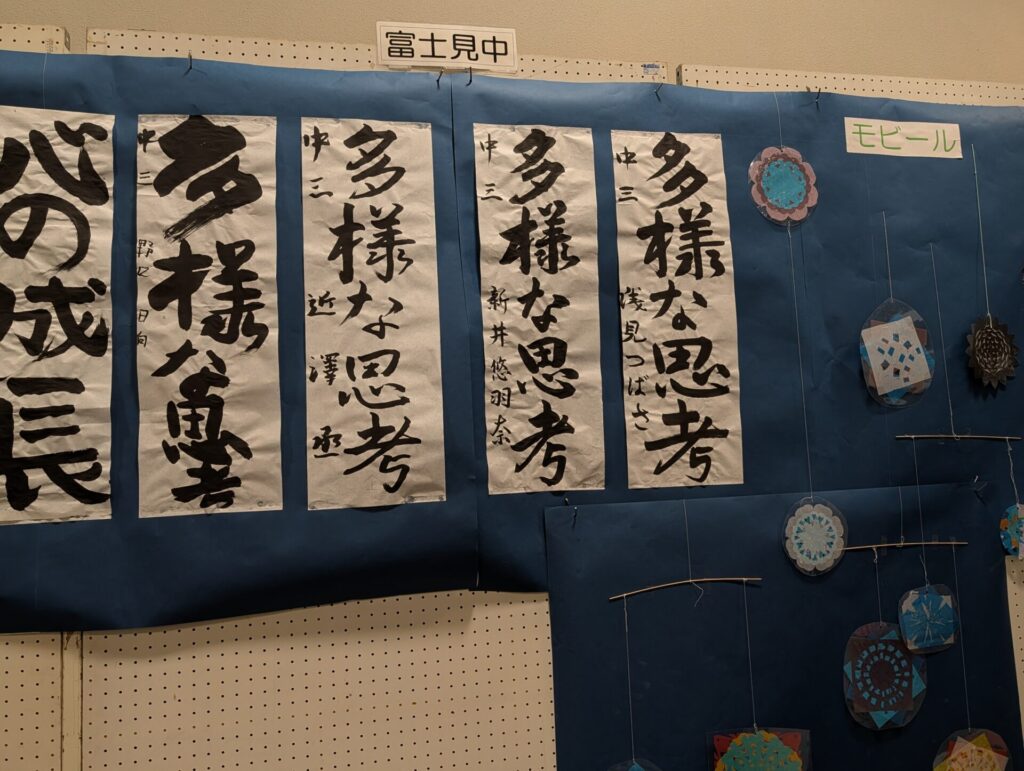 富士見中
モビール
多様な思考
中三 浅見つばさ
多様な思考
中三 新井悠羽奈
多様な思考
中三 近澤丞
多様な思考
中三
心の成長